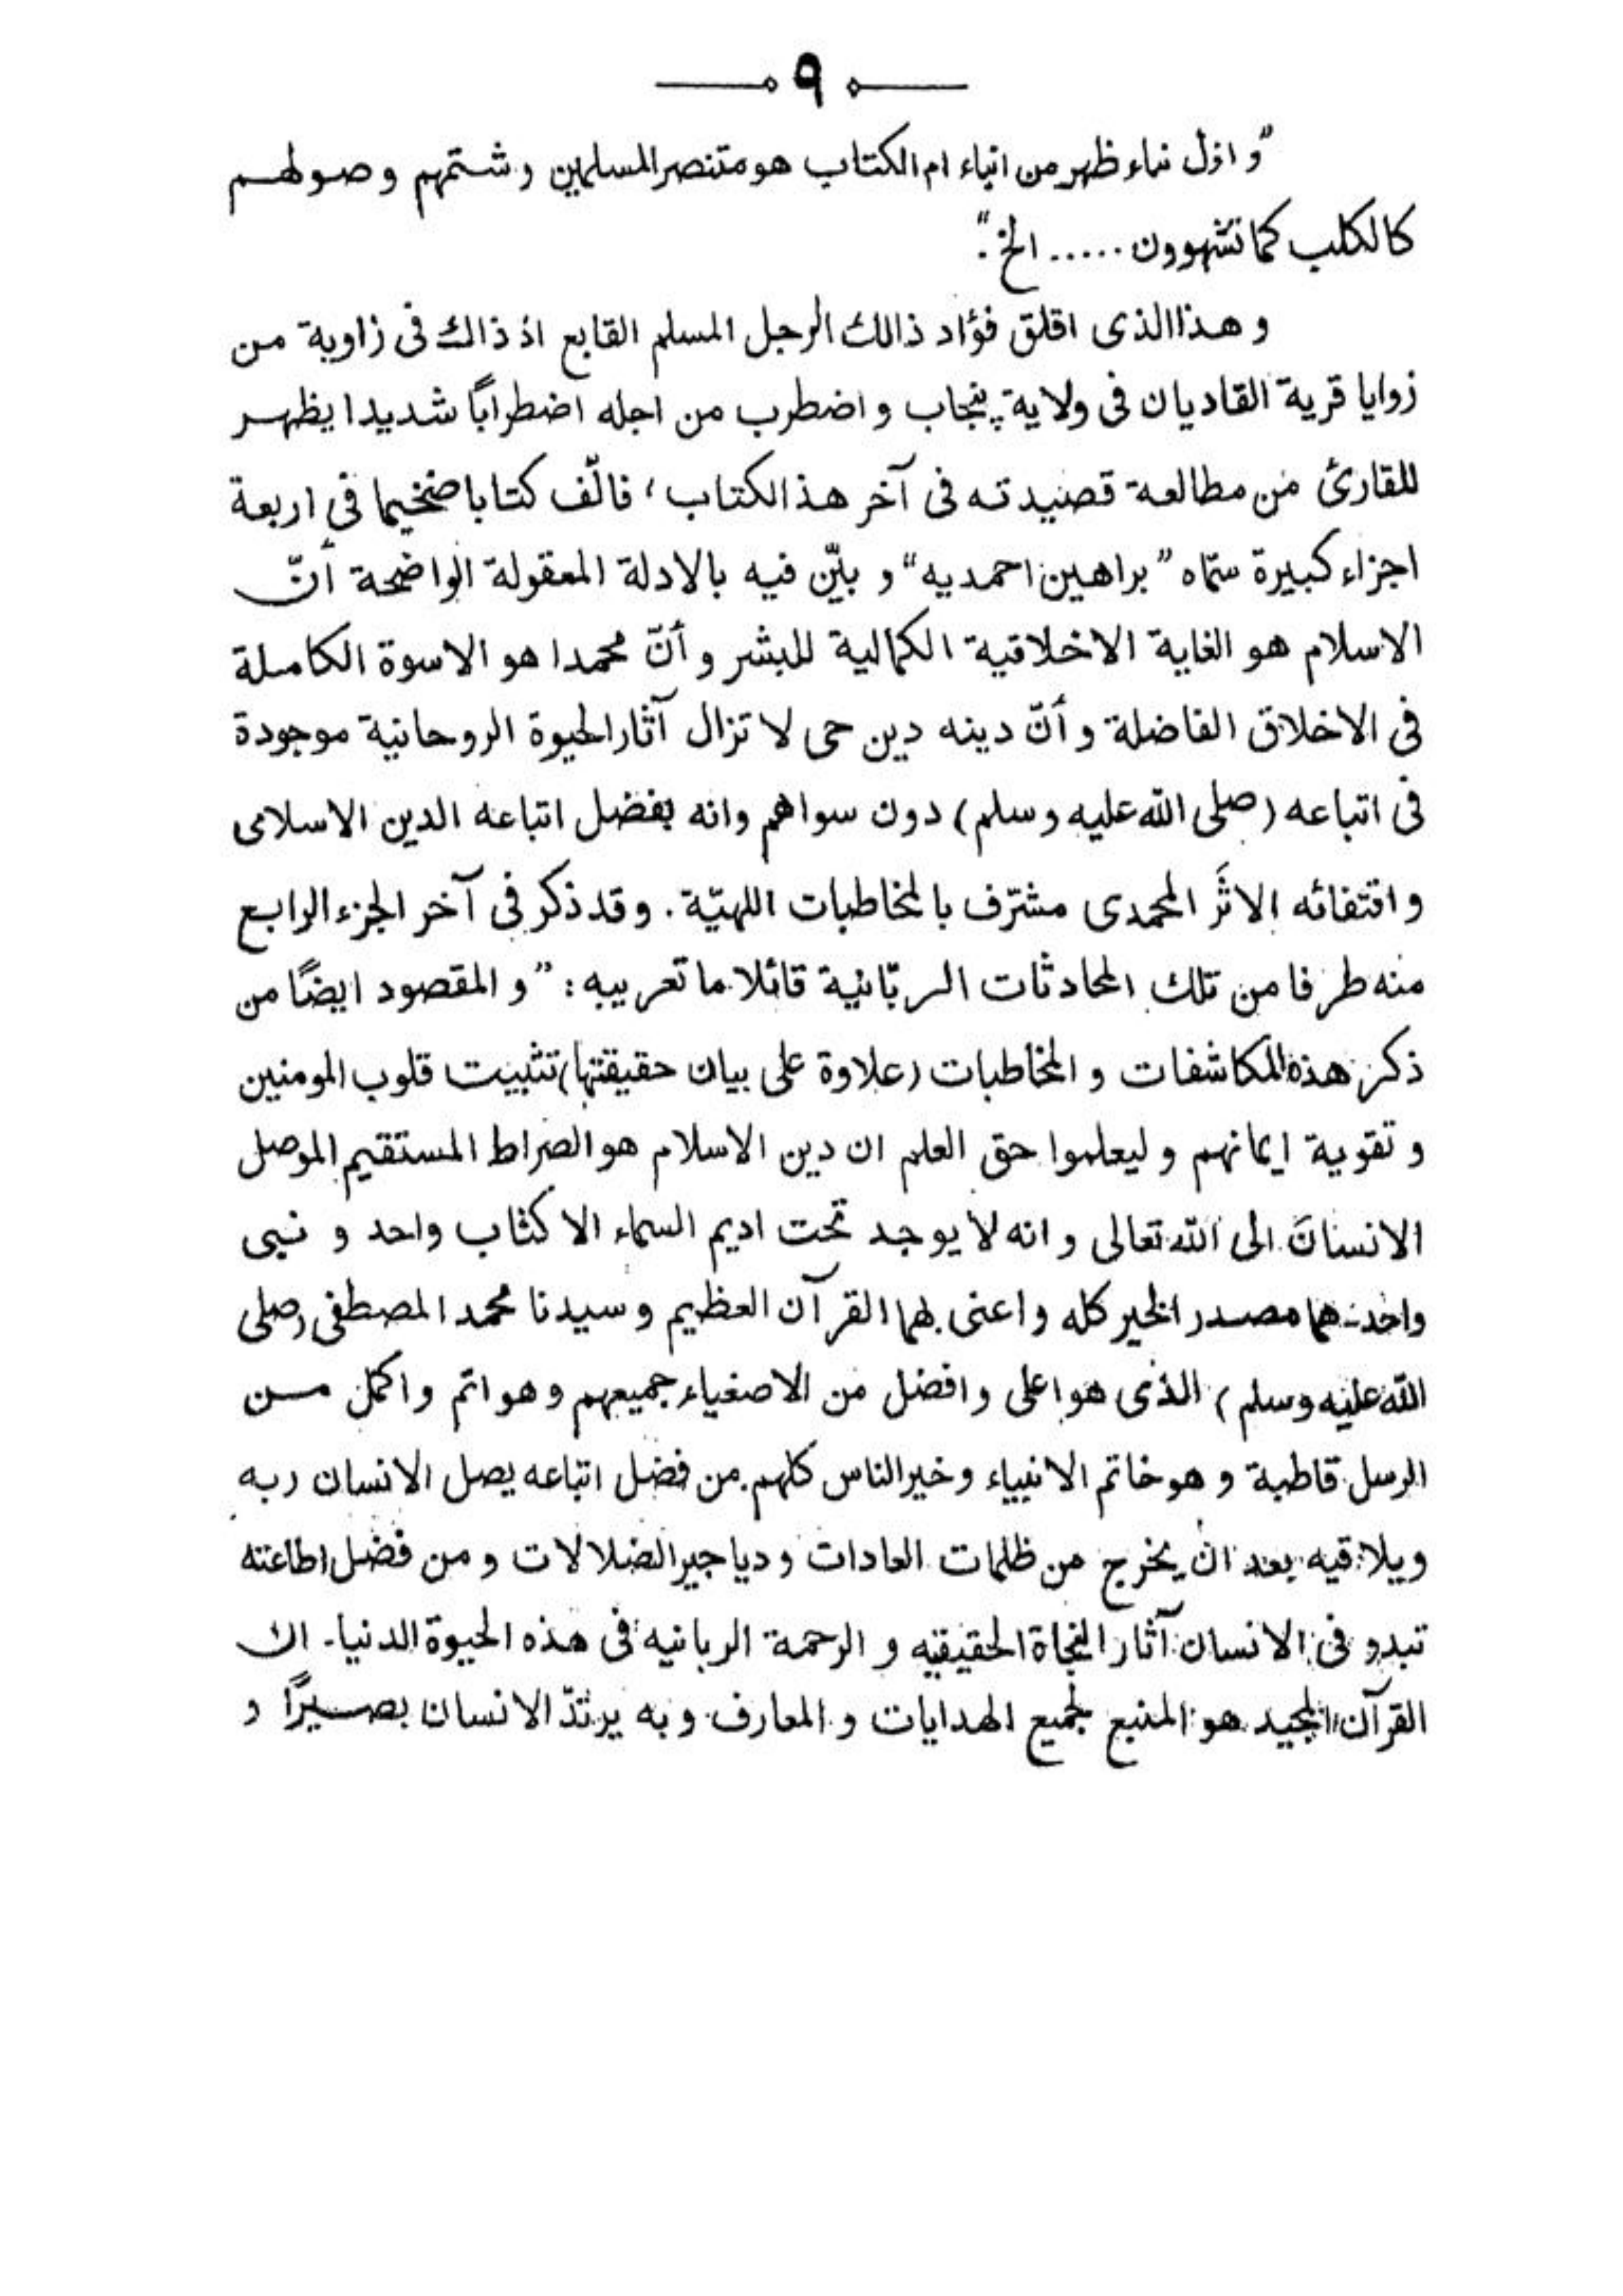 ٩
”و اوّل نماء ظهر من انباء ام الكتاب هو متنصر المسلمين وشتمهم وصولهم
كالكلب كما تشهوون ..... الخ“.
و هذا الذى اقلق فؤاد ذالك الرجل المسلم القابع اذ ذاك فى زاوية من
زوايا قرية القاديان فى ولاية پنجاب و اضطرب من اجله اضطراباً شديدا يظهر
للقارئ من مطالعة قصيدته فى آخر هذ الكتاب، فالّف كتابا ضخيما فى اربعة
اجزاء كبيرة سمّاه ”براهين احمديه“ و بيّن فيه بالادلة المعقولة الواضحة أنّ
الاسلام هو الغاية الاخلاقية الكمالية للبشر و أنّ محمدا هو الاسوة الكاملة
فى الاخلاق الفاضلة و أنّ دينه دين حى لا تزال آثار الحيوة الروحانية موجودة
فى اتباعه (صلى الله عليه وسلم) دون سواهم وانه بفضل اتباعه الدين الاسلامى
و اقتفائه الاثَر المحمدى مشرّف بالمخاطبات اللهيّة. و قد ذكر فى آخر الجزء الرابع
منه طرفا من تلك المحادثات الربّانية قائلا ما تعريبه: ”و المقصود ايضًا من
ذكر هذه المكاشفات و المخاطبات (علاوة على بيان حقيقتها) تثبيت قلوب المومنين
و تقوية ايمانهم و ليعلموا حق العلم ان دين الاسلام هو الصراط المستقيم الموصل
الانسانَ الى الله تعالى و انه لا يوجد تحت اديم السماء الا كتاب واحد و نبى
واحد- هما مصدر الخير كله و اعنى بهما القرآن العظيم و سيدنا محمد المصطفى (صلى
الله عليه وسلم) الذى هو اعلى و افضل من الاصفياء جميعهم و هو اتم و اكمل من
الرسل قاطبة و هو خاتم الانبياء و خير الناس كلهم. من فضل اتباعه يصل الانسان ربه
ويلاقيه بعد ان يخرج من ظلمات العادات و دياجير الضلالات و من فضل اطاعته
تبدو فى الانسان آثار النجاة الحقيقيه و الرحمة الربانيه فى هذه الحيوة الدنيا- ان
القرآن المجيد هو المنبع لجميع الهدايات و المعارف و به يرتدّ الانسان بصيرًا و